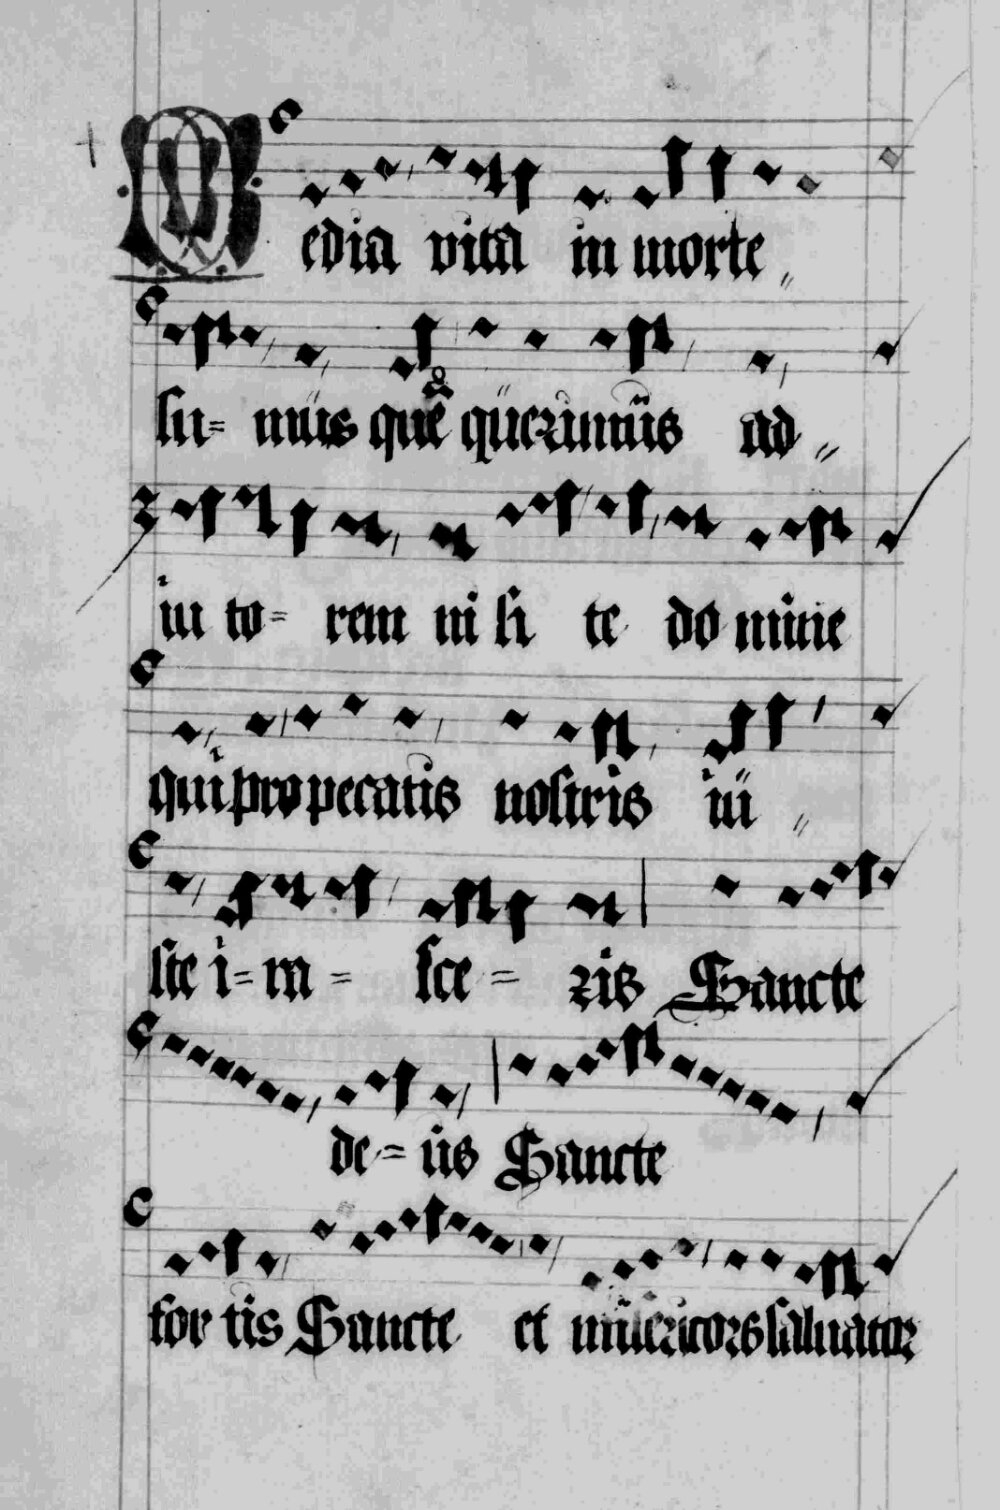 Media vita in morte
su= mus quē querimus ad
iu to= rem ni si te do mine
qui pro pecatis nostris iu
ste i= ra = sce = ris Sancte
de = us Sancte
for tis Sancte et misericors saluator